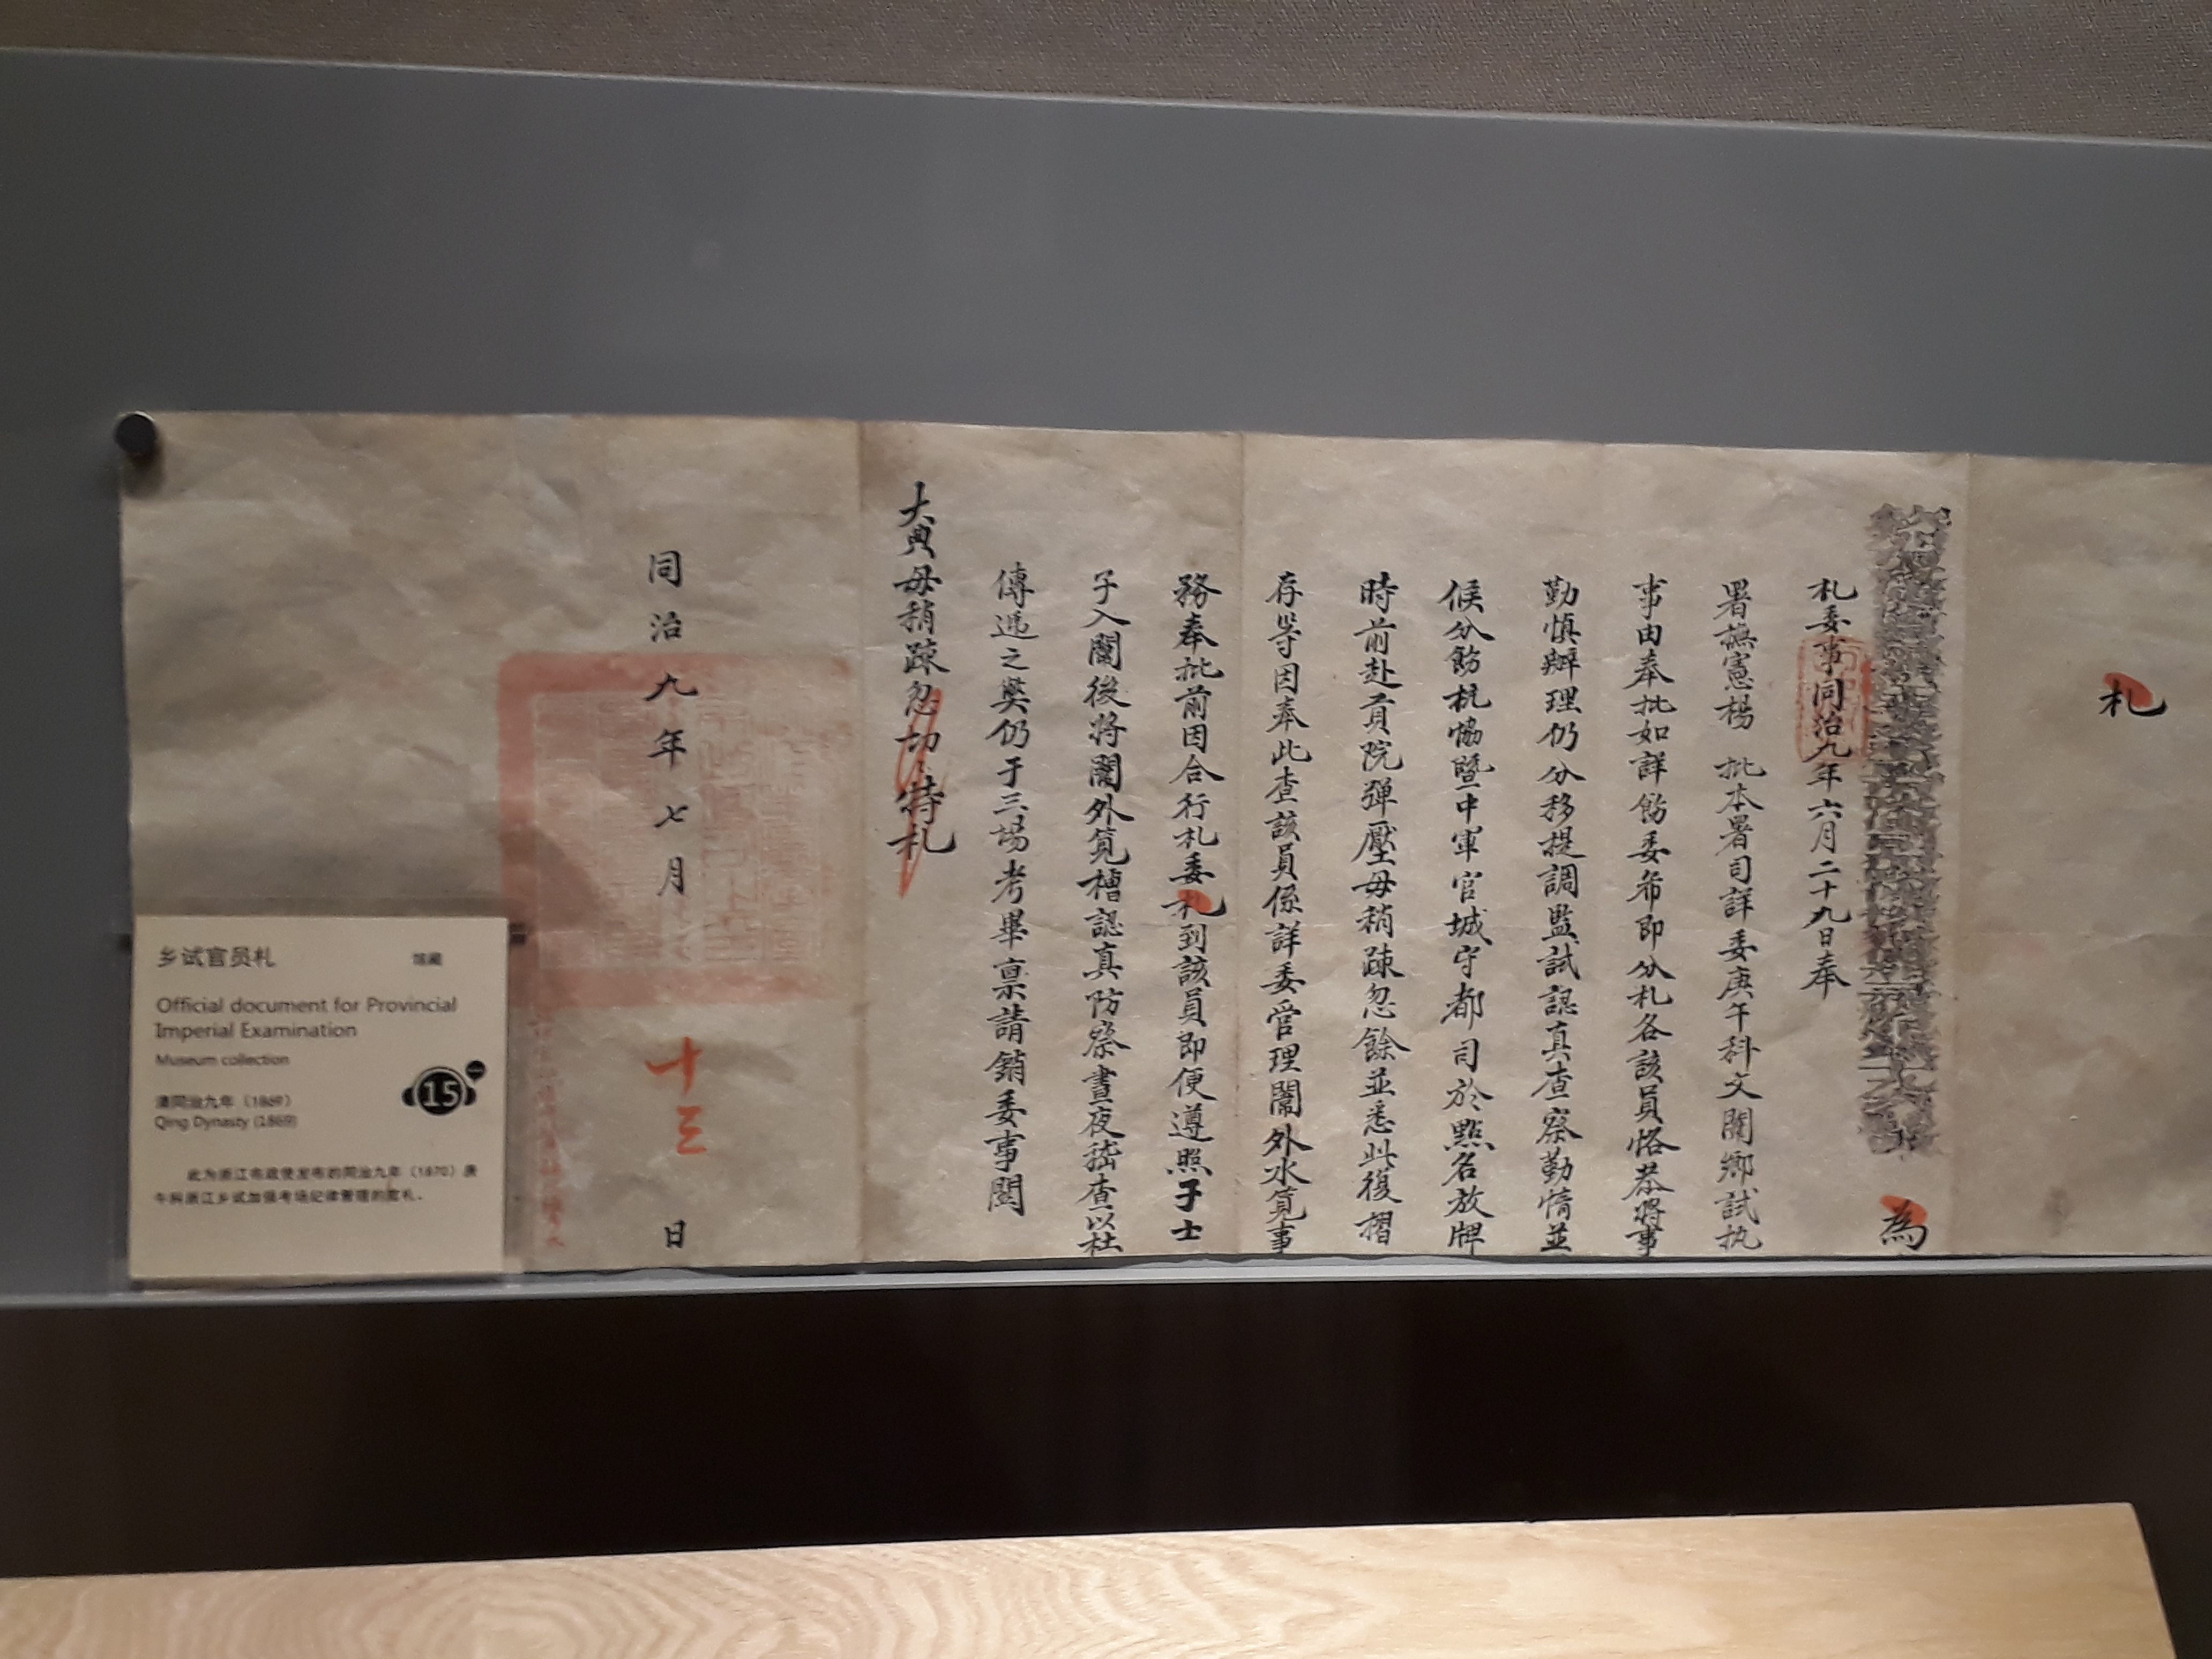 札
為
札委事同治九年六月二十九日奉
署撫憲楊 批本署司詳委庚午科文闈鄉試执
事由奉批如詳飭委希即分札各該員恪恭將事
勤慎辦理仍分移提調監試認真查察勤惰並
候分飭杭協暨中軍官城守都司於點名放牌
時前赴貢院彈壓毋稍疎忽餘並悉此復摺
存等因奉此查該員係詳委管理闈外水筧事
務奉批前因合行札委札到該員即便遵照于士
子入闈後將闈外筧槽認真防察晝夜嵇查以杜
傳遞之獘仍于三場考畢禀請銷委事関
大典毋稍疎忽切切特札
同治九年七月十三日
乡试官员札 馆藏
Official document for Provincial
Imperial Examination
Museum collection
清同治九年（1869）
Qing Dynasty (1869)
15
此为浙江布政使发布的同治九年（1870）庚
午科浙江乡试加强考场纪律管理的官札。